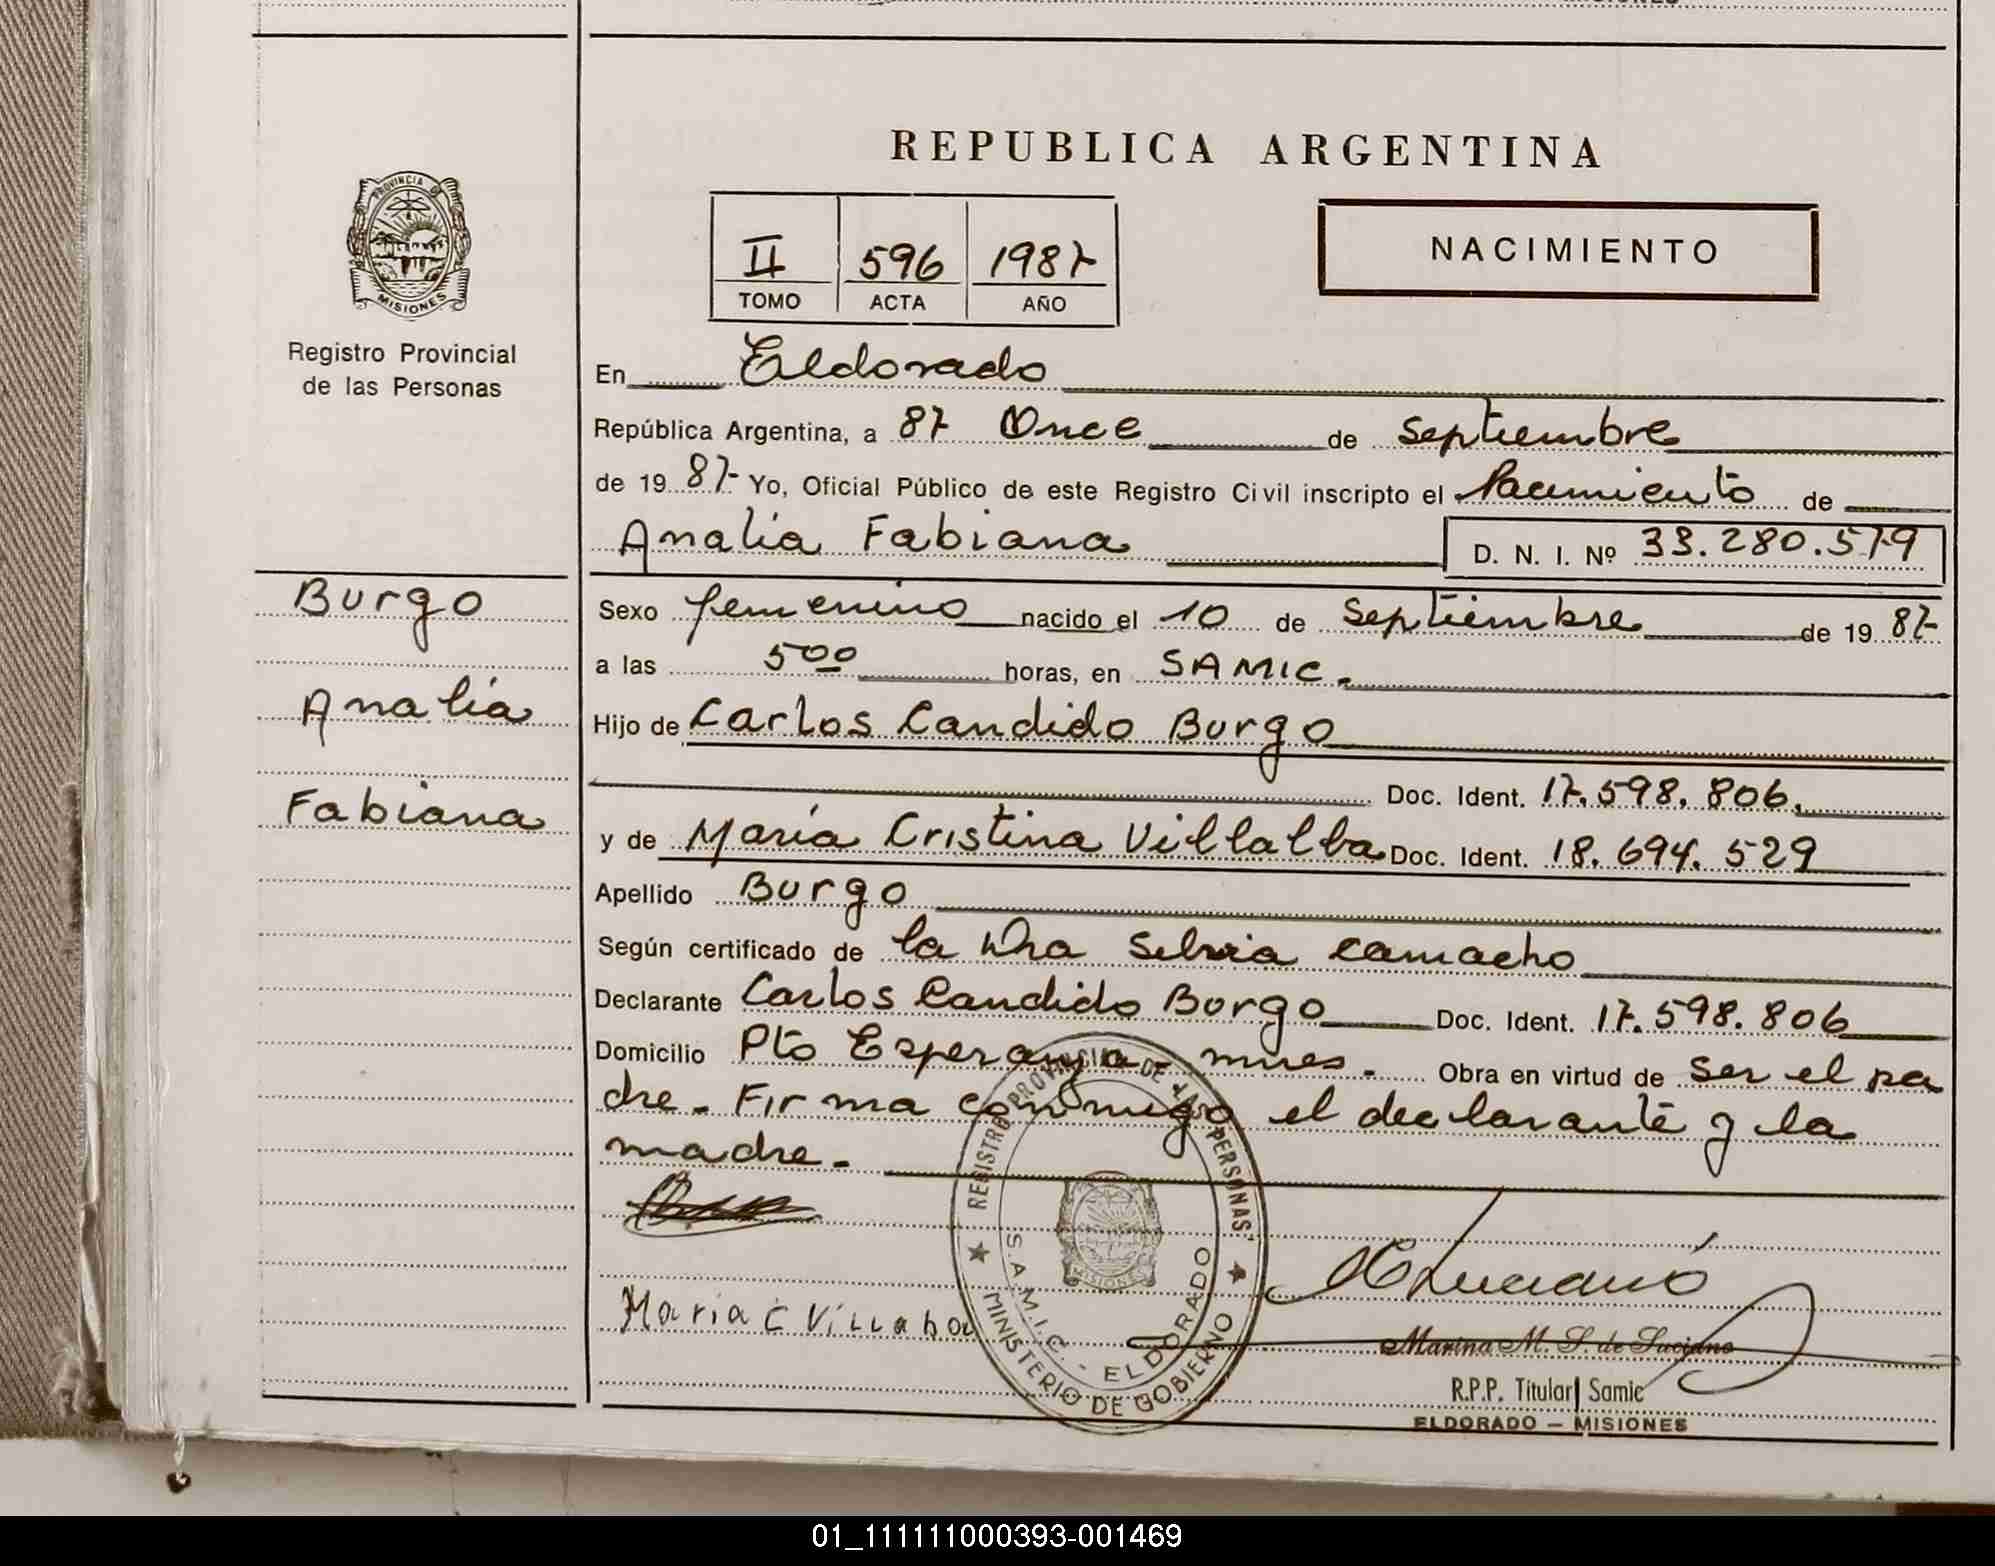 REPUBLICA ARGENTINA
PROVINCIA DE
MISIONES
Registro Provincial
de las Personas
II 596 1987
TOMO ACTA AÑO
NACIMIENTO
En Eldorado
República Argentina, a 87 Once de septiembre
de 19 87 Yo, Oficial Público de este Registro Civil inscripto el Nacimiento de
Analia Fabiana D. N. I. Nº 33.280.579
Burgo
Analia
Fabiana
Sexo femenino nacido el 10 de Septiembre de 19 87
a las 5 00 horas, en SAMIC.
Hijo de Carlos Candido Burgo
Doc. Ident. 17.598.806.
y de María Cristina Villalba Doc. Ident. 18.694.529
Apellido Burgo
Según certificado de la Dra Silvia Camacho
Declarante Carlos Candido Burgo Doc. Ident. 17.598.806
Domicilio Pto Esperanza - mnes. Obra en virtud de ser el pa
dre. Firma conmigo el declarante y la
madre.
Maria C Villaba
REGISTRO PROVINCIAL DE LAS PERSONAS
S.A.M.I.C. - ELDORADO
MINISTERIO DE GOBIERNO
MISIONES
Marina M. S. de Luciano
R.P.P. Titular Samic
ELDORADO — MISIONES
01_111111000393-001469